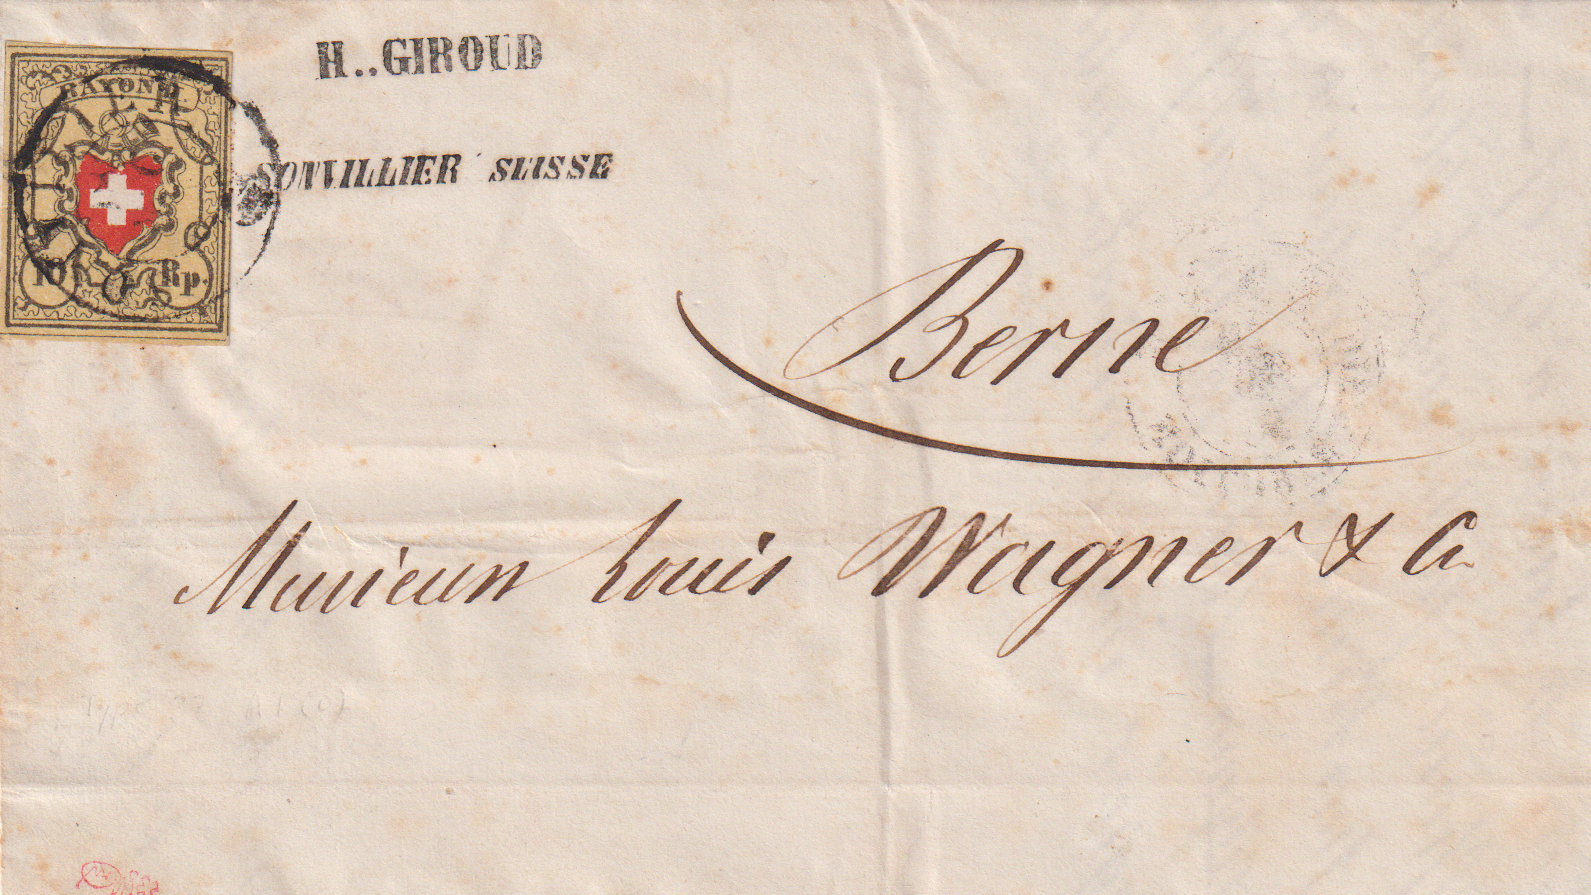 H..GIROUD
RAYON II
SONVILLIER SUISSE
10 Rp.
Berne
Monsieur Louis Wagner & Co.